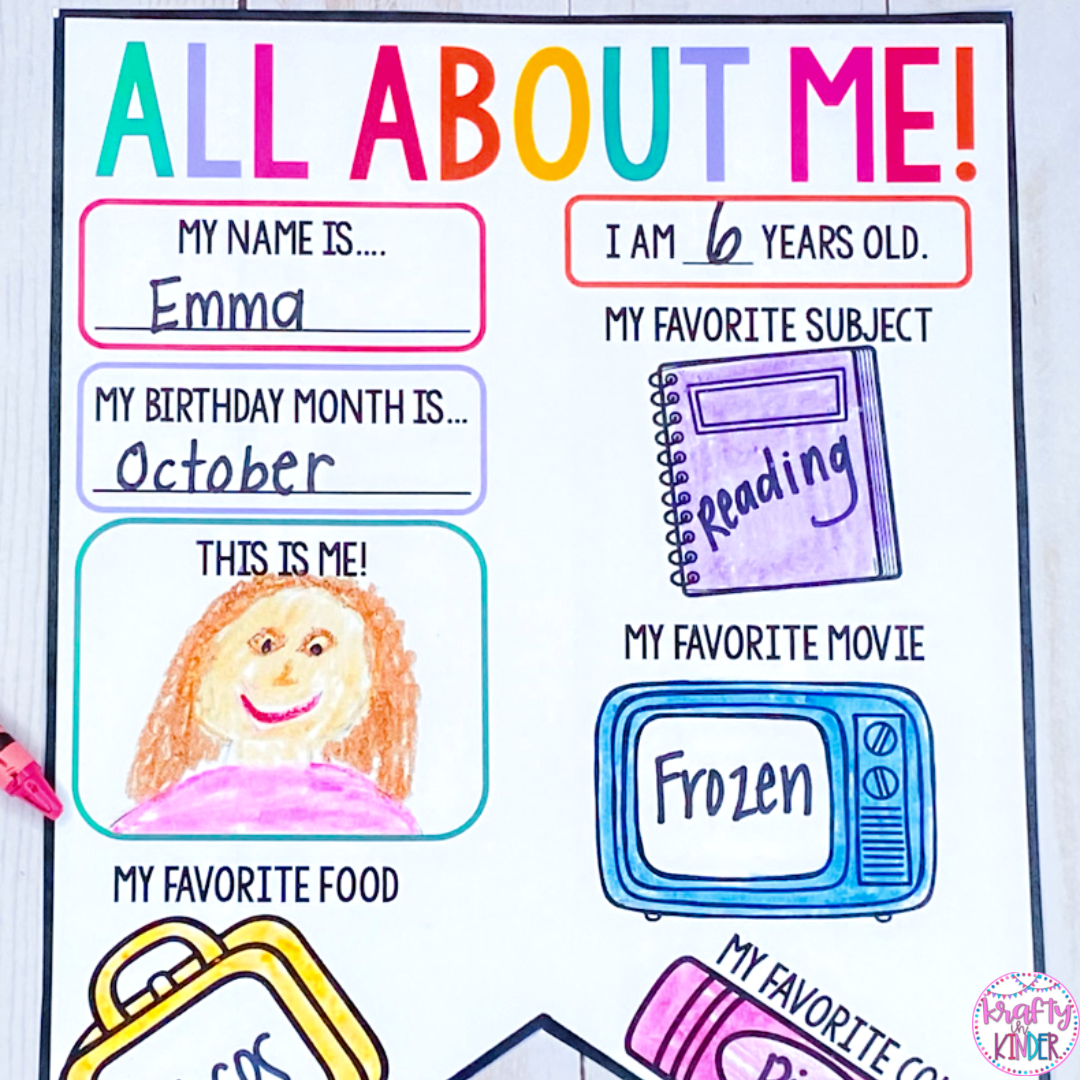 ALL ABOUT ME!
MY NAME IS....
Emma
I AM 6 YEARS OLD.
MY BIRTHDAY MONTH IS...
October
MY FAVORITE SUBJECT
Reading
THIS IS ME!
MY FAVORITE MOVIE
Frozen
MY FAVORITE FOOD
MY FAVORITE
krafty
in
KINDER